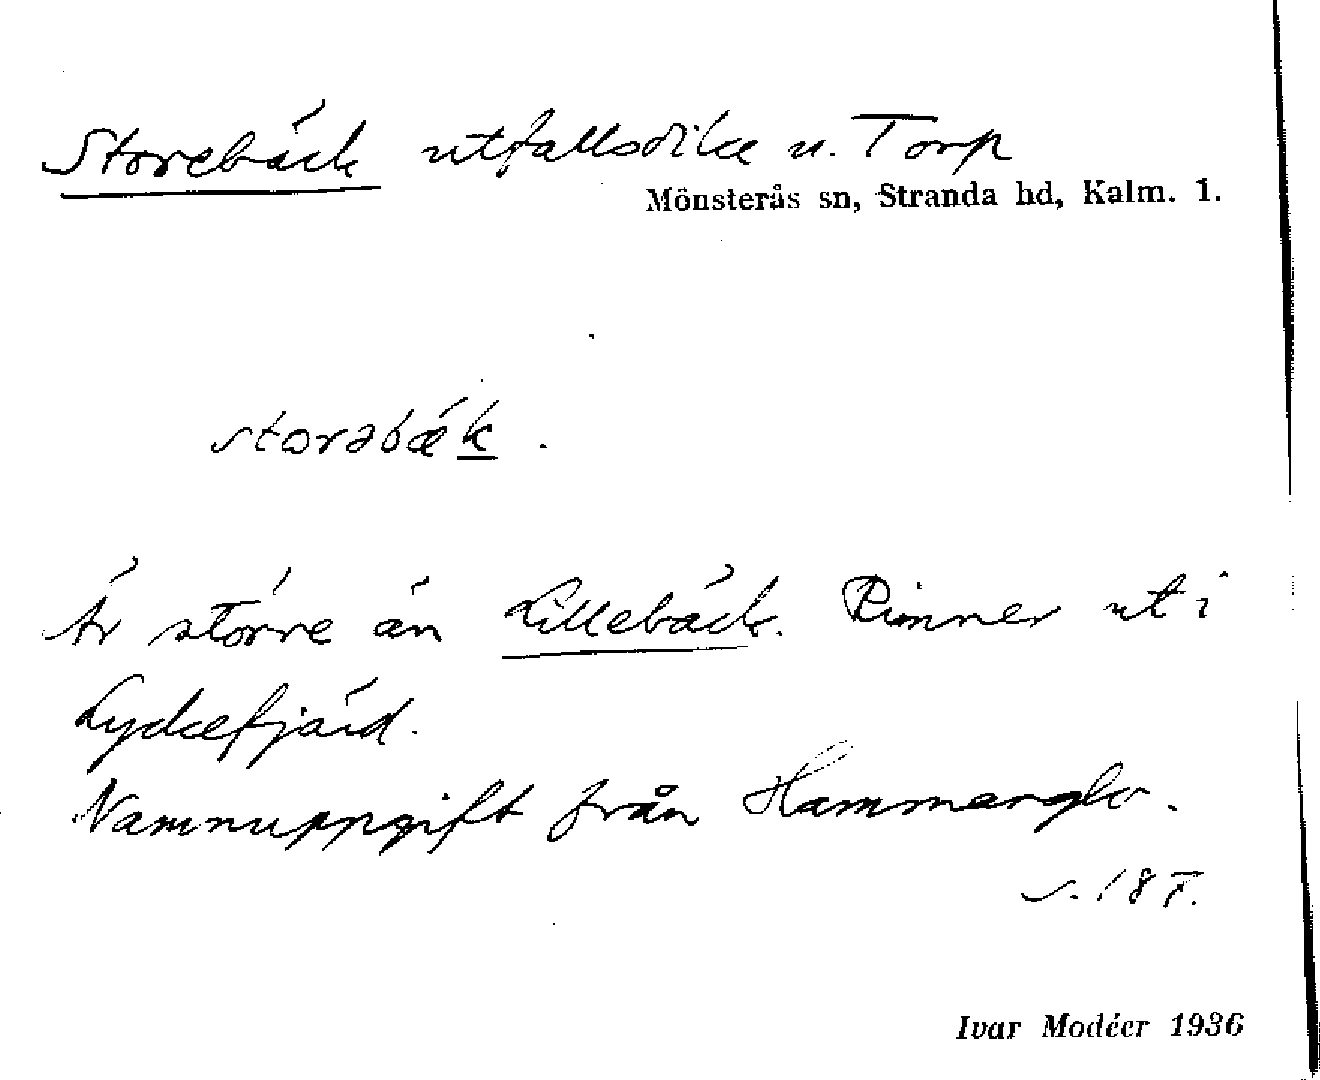 Storebäck utfallsdike u. Torp
Mönsterås sn, Stranda hd, Kalm. l.
storəbæ´k.
Är större än Lillebäck. Rinner ut i
Lyckefjärd.
Namnuppgift från Hammarglo.
s. 187.
Ivar Modéer 1936